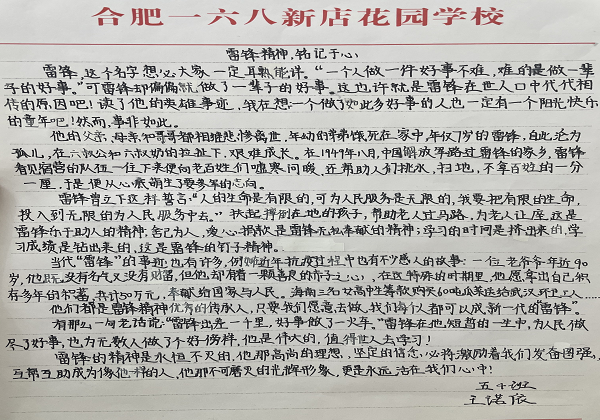 合肥一六八新店花园学校
雷锋精神,铭记于心
雷锋,这个名字想必大家一定耳熟能详。“一个人做一件好事不难,难的是做一辈
子的好事。”可雷锋却偏偏就做了一辈子的好事。这也许就是雷锋在世人口中代代相
传的原因吧!读了他的英雄事迹,我在想:一个做了如此多好事的人也一定有一个阳光快乐
的童年吧!然而,事非如此。
他的父亲、母亲和哥哥都相继悲惨离世,年幼的弟弟饿死在家中,年仅7岁的雷锋,自此沦为
孤儿,在六叔公和六叔奶的拉扯下,艰难成长。在1949年八月,中国解放军路过雷锋的家乡,雷锋
看见宿营的队伍一住下来便向老百姓们嘘寒问暖,还帮助人们挑水、扫地,不拿百姓的一分
一厘,于是便从心底萌生了要参军的志向。
雷锋曾立下这样誓言:“人的生命是有限的,可为人民服务是无限的,我要把有限的生命,
投入到无限的为人民服务中去。”扶起摔倒在地的孩子,帮助老人过马路,为老人让座,这是
雷锋乐于助人的精神;舍己为人,爱心捐款是雷锋无私奉献的精神;学习的时间是挤出来的,学
习成绩是钻出来的,这是雷锋的钉子精神。
当代“雷锋”的事迹也有许多,例如近年抗疫过程中也有不少感人的故事:一位老爷爷年近90
岁,他既没有名气又没有财富,但他却有着一颗善良的赤子之心,在这特殊的时期里,他愿拿出自己积
有多年的积蓄,共计50万元,奉献给国家与人民。海南三名女高中生筹款购买60吨瓜菜送给武汉环卫工人……
他们都是雷锋精神优秀的传承人,只要我们愿意去做,我们每个人都可以成新一代的“雷锋”。
有那么一句老话说:“雷锋出差一千里,好事做了一火车。”雷锋在他短暂的一生中,为人民做
尽了好事,也为无数人做了个好榜样,他是伟大的,值得世人去学习!
雷锋的精神是永恒不灭的,他那高尚的理想、坚定的信念,必将激励着我们发奋图强,
互帮互助成为像他一样的人,他那不可磨灭的光辉形象,更是永远活在我们心中!
五十班
王诺辰